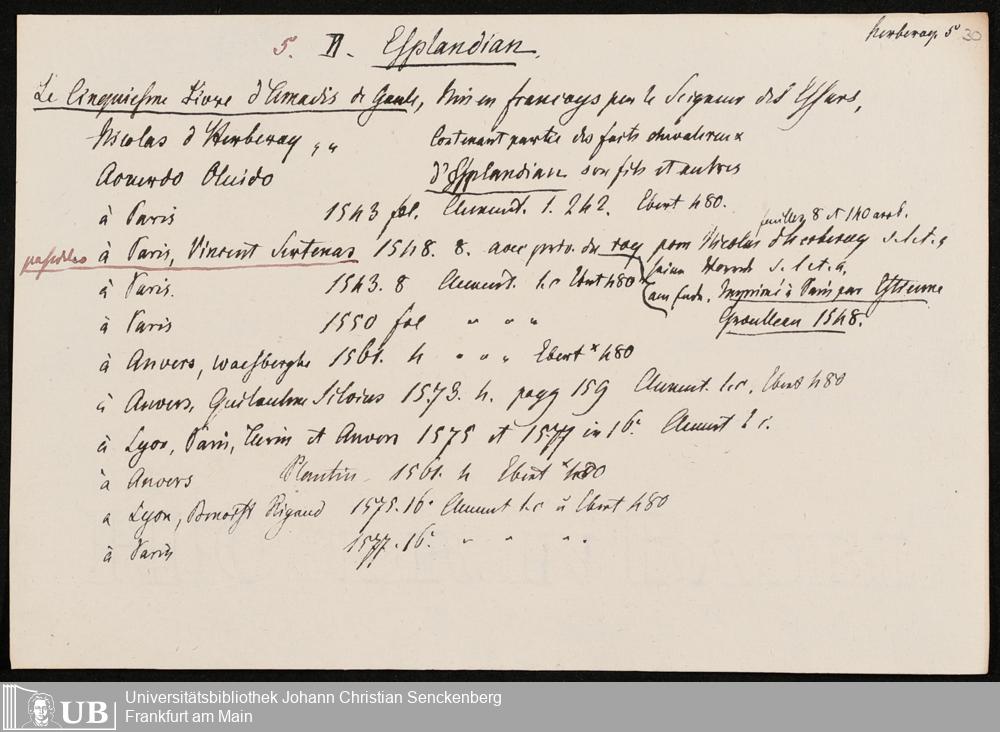 Herberay. 5 30
5. II. Esplandian.
Le Cinquiesme Livre d'Amadis de Gaule, Mis en francoys par le Seigneur des Essars,
Nicolas d'Herberay „ „ Contenant partie des faits chevalereux
Acuerdo Oluido d'Esplandian son fils et autres
à Paris 1543 fol. Clement. 1. 242. Ebert 480.
feuillez 8 et 140
possideo à Paris, Vincent Sertenas 1548. 8. avec priv. du roy pour Nicolas d'herberay s. l. et. a
à Paris. 1543. 8 Clement. l.c Ebert 480 s. l. et. a,
Imprimé à Paris par Estienne
à Paris 1550 fol „ „ „ Groulleau 1548.
à Anvers, Waesberghe 1561. 4 „ „ „ Ebert * 480
à Anvers, Guilaulme Silvius 1573. 4. pagg 159 Clement. l.c, Ebert 480
à Lyon, Paris, et Anvers 1575 et 1577 in 16°. Clement l c.
à Anvers Plantin 1561. 4 Ebert * 480
a Lyon, Benoist Rigaud 1575. 16° Clement l.c Ebert 480
à Paris 1577. 16°. „ „ „ „
UB
Universitätsbibliothek Johann Christian Senckenberg
Frankfurt am Main